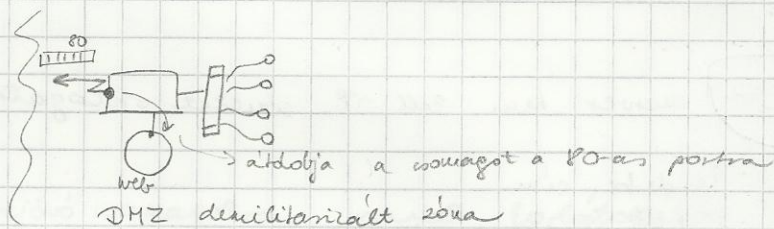 80
átdobja a csomagot a 80-as portra
web
DMZ demilitarizált zóna